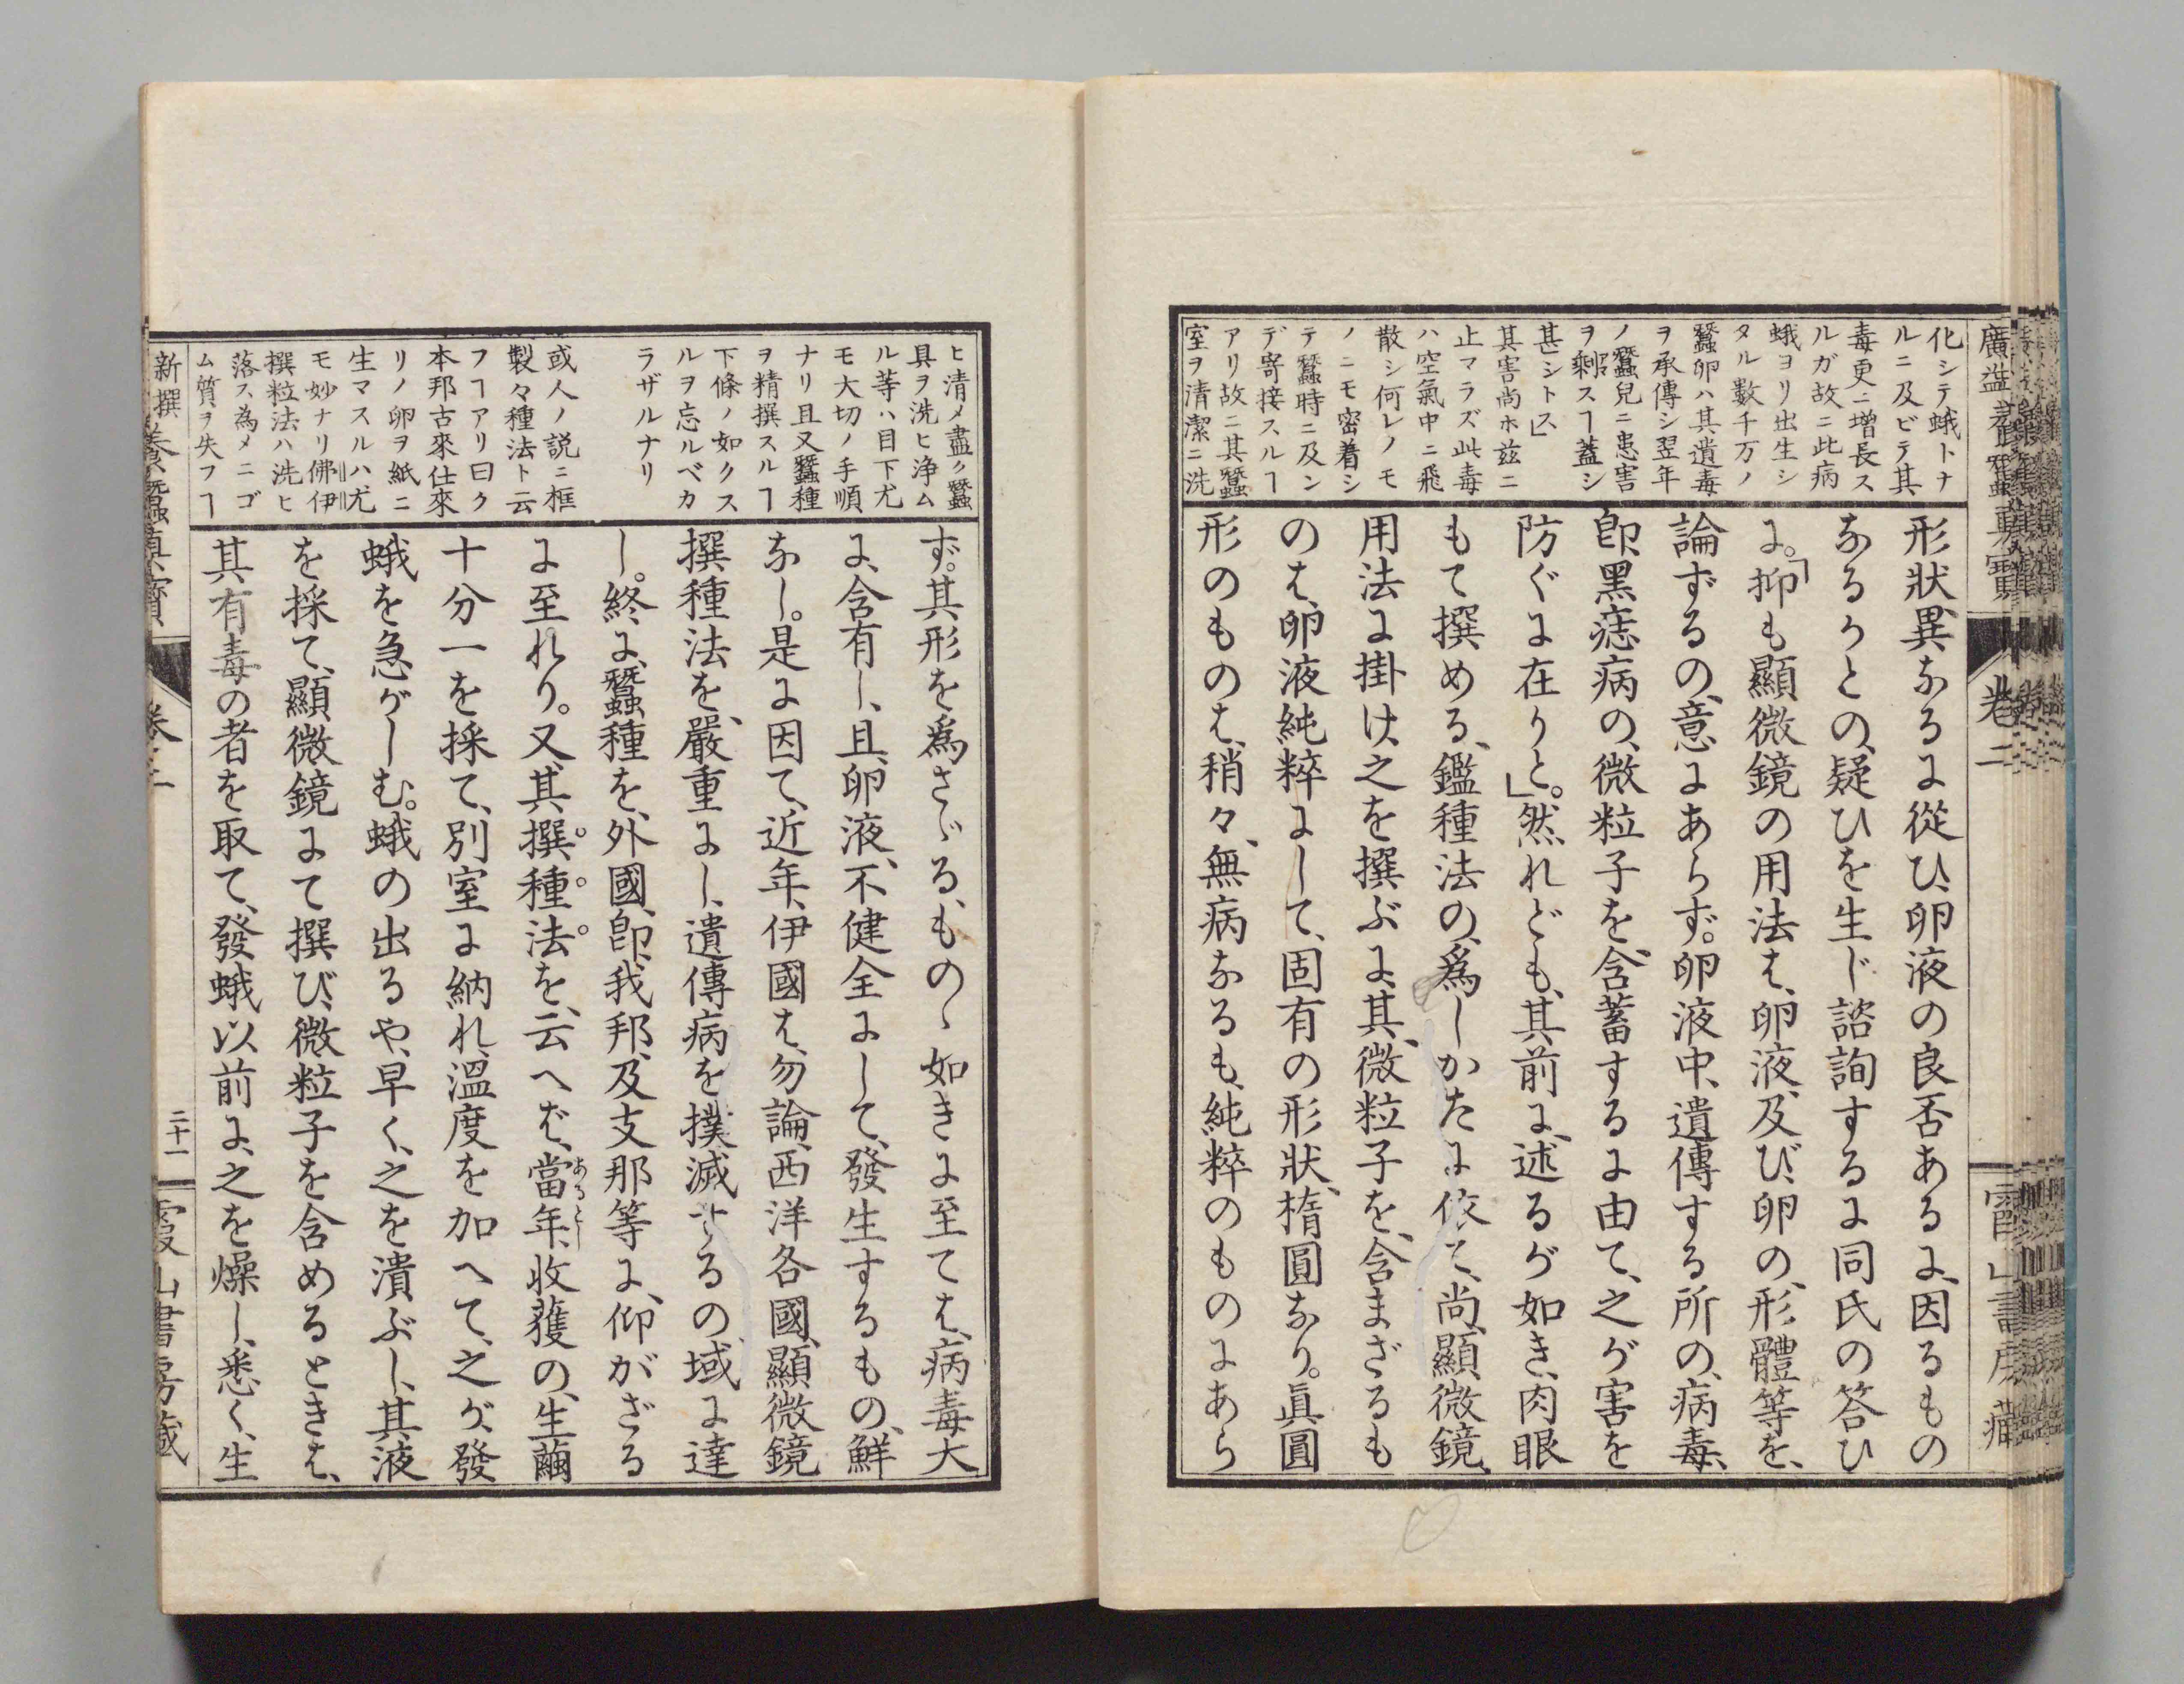 化シテ蛾トナ
ルニ及ビテ其
毒更ニ增長ス
ルガ故ニ此病
蛾ヨリ出生シ
タル數千万ノ
蠶卵ハ其遺毒
ヲ承傳シ翌年
ノ蠶兒ニ患害
ヲ剩スヿ蓋シ
甚シトス」
其害尚ホ玆ニ
止マラズ此毒
ハ空氣中ニ飛
散シ何レノモ
ノニモ密着シ
テ蠶時ニ及ン
デ寄接スルヿ
アリ故ニ其蠶
室ヲ清潔ニ洗
形狀異なるに從ひ、卵液の良否あるに、因るもの
なるかとの、疑ひを生じ諮詢するに同氏の答ひ
に。「抑も顯微鏡の用法は、卵液、及び、卵の、形體等を、
論ずるの、意にあらず。卵液中、遺傳する所の、病毒、
卽、黒痣病の、微粒子を、含蓄するに由て、之が害を
防ぐに在りと。」然れども、其前に、述るが如き、肉眼
もて撰める、鑑種法の、爲しかたに依て、尚、顯微鏡、
用法に掛け、之を撰ぶに、其、微粒子を、含まざるも
のは、卵液純粹にして、固有の形狀、楕圓なり。眞圓
形のものは、稍々、無病なるも、純粹のものにあら
卷二
ヒ清メ盡ク蠶
具ヲ洗ヒ淨ム
ル等ハ目下尤
モ大切ノ手順
ナリ且又蠶種
ヲ精撰スルヿ
下條ノ如クス
ルヲ忘ルベカ
ラザルナリ
或人ノ説ニ框
製々種法ト云
フヿアリ曰ク
本邦古來仕來
リノ卵ヲ紙ニ
生マスルハ尤
モ妙ナリ佛伊
撰粒法ハ洗ヒ
落ス為メニゴ
ム質ヲ失フヿ
ず。其形を爲さゞる、ものゝ如きに至ては、病毒大
に、含有し、且、卵液、不健全にして、發生するもの、鮮
なし。是に因て、近年、伊國は、勿論、西洋各國、顯微鏡
撰種法を、嚴重にし、遺傳病を撲滅するの、域に達
し。終に、蠶種を、外國、卽、我邦、及、支那等に、仰がざる
に至れり。又、其撰種法を、云へば、當年、收獲の、生繭
あるとし
十分一を採て、別室に納れ、溫度を加へて、之が、發
蛾を急がしむ。蛾の出るや、早く、之を潰ぶし、其液
を採て、顯微鏡にて撰び、微粒子を含めるときは、
其有毒の者を取て、發蛾以前に、之を燥し、悉く、生
新撰養蠶眞寶
卷二
二十一
霞山書房藏